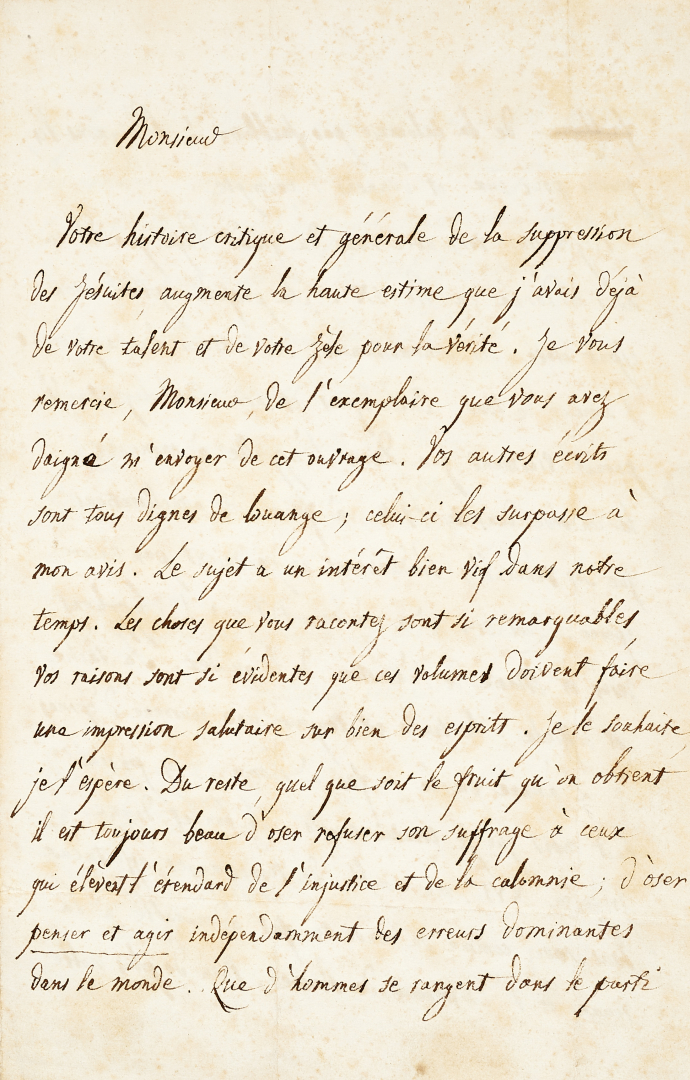 Monsieur
Votre histoire critique et générale de la suppression
des Jésuites augmente la haute estime que j'avais déjà
de votre talent et de votre zèle pour la vérité. Je vous
remercie, Monsieur, de l'exemplaire que vous avez
daigné m'envoyer de cet ouvrage. Vos autres écrits
sont tous dignes de louange; celui-ci les surpasse à
mon avis. Le sujet a un intérêt bien vif dans notre
temps. Les choses que vous racontez sont si remarquables
vos raisons sont si évidentes que ces volumes doivent faire
une impression salutaire sur bien des esprits. Je le souhaite,
je l'espère. Du reste, quel que soit le fruit qu'on obtient
il est toujours beau d'oser refuser son suffrage à ceux
qui élèvent l'étendard de l'injustice et de la calomnie; d'oser
penser et agir indépendamment des erreurs dominantes
dans le monde. Que d'hommes se rangent dans le parti